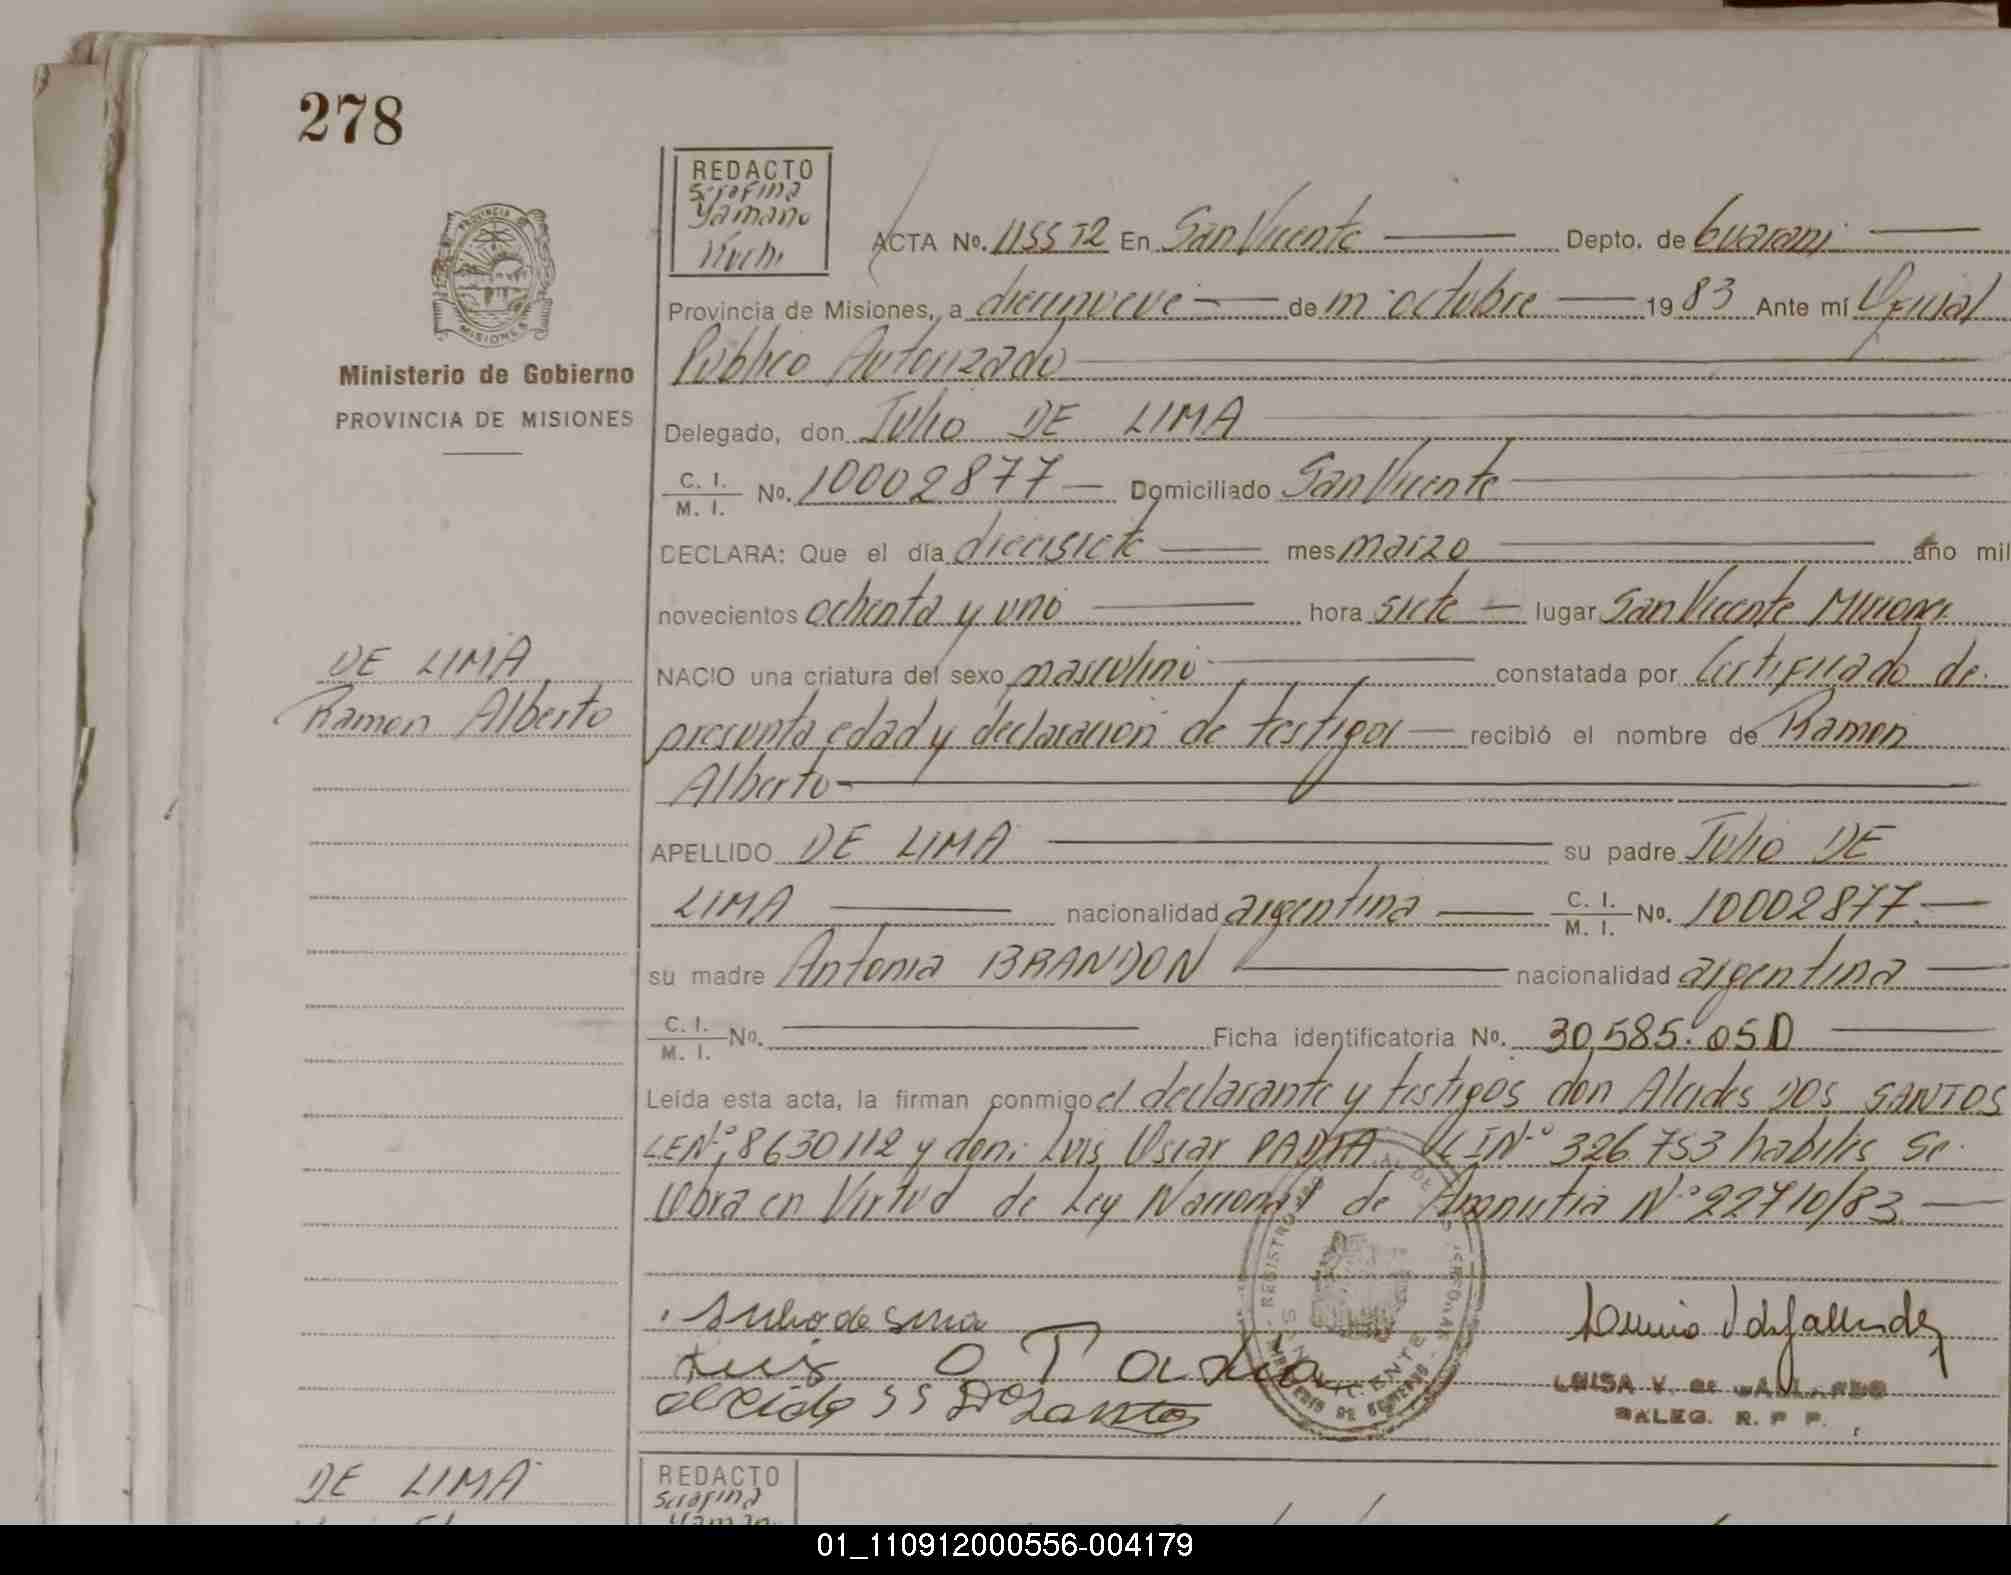 278
REDACTO
Serafina
Yamano
Kuchi
ACTA No. 1155 T2 En San Vicente Depto. de Guarani
Provincia de Misiones, a diecinueve de m. octubre 1983 Ante mí Oficial
Publico Autorizado
PROVINCIA DE MISIONES
Ministerio de Gobierno
PROVINCIA DE MISIONES
Delegado, don Julio DE LIMA
C. I.
M. I. No. 10002877 Domiciliado San Vicente
DECLARA: Que el día diecisiete mes marzo año mil
novecientos ochenta y uno hora siete lugar San Vicente Misiones
DE LIMA
Ramon Alberto
NACIO una criatura del sexo masculino constatada por Certificado de
presunta edad y declaracion de testigos recibió el nombre de Ramon
Alberto
APELLIDO DE LIMA su padre Julio DE
LIMA nacionalidad argentina C. I.
M. I. No. 10002877
su madre Antonia BRANDON nacionalidad argentina
C. I.
M. I. No. Ficha identificatoria No. 30,585.050
Leída esta acta, la firman conmigo el declarante y testigos don Alcides DOS SANTOS
LE Nº 8630112 y don: Luis Oscar PADIA Nº 326.753 habiles Se
Obra en Virtud de Ley Nacional de Amnistia Nº 22710/83
REGISTRO
SAN VICENTE
MINISTERIO DE GOBIERNO
Julio de Lima
Luis O
Dos Santos
LUISA V. DE GALLARDO
DALEG. R. P. P.
DE LIMA
REDACTO
Serafina
Yamano
01_110912000556-004179